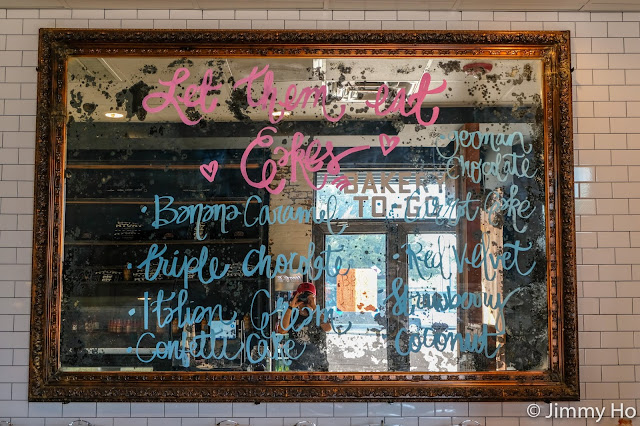 Let them eat
Cakes
• Banana Caramel
• Triple Chocolate
• Italian Cream
• Confetti Cake
German
Chocolate
Cake
• Red Velvet
• Strawberry
• Coconut
BAKERY
TO-GO
© Jimmy Ho